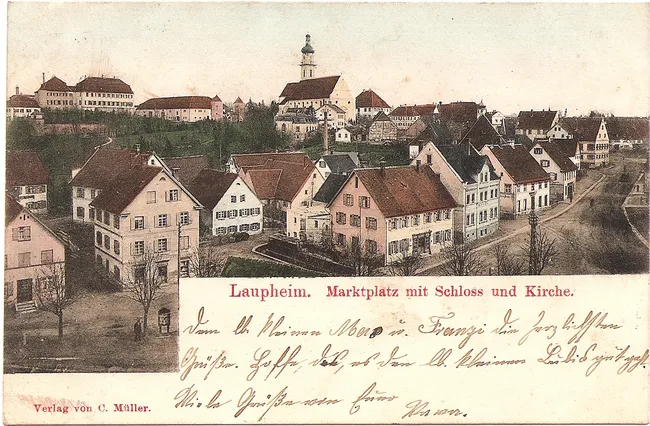 Laupheim. Marktplatz mit Schloss und Kirche.
Den lb. kleinen Max u. Franzi die herzlichsten
Grüße. Hoffe, das, es den lb. kleinen Lubis gut geht.
Viele Grüße von Euer
Verlag von C. Müller.